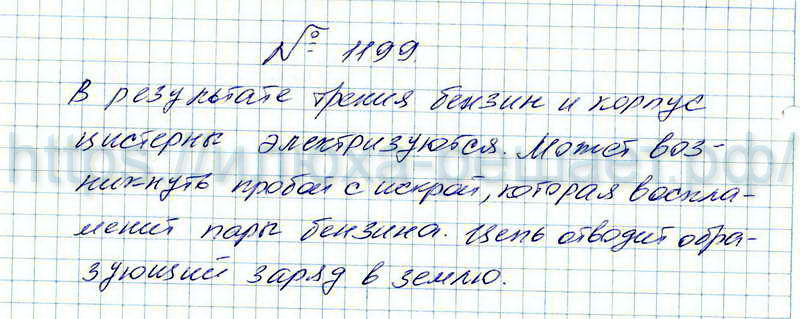 № 1199.
В результате трения бензин и корпус
цистерны электризуются. Может воз-
никнуть пробой с искрой, которая воспла-
менит пары бензина. Цепь отводит обра-
зующий заряд в землю.